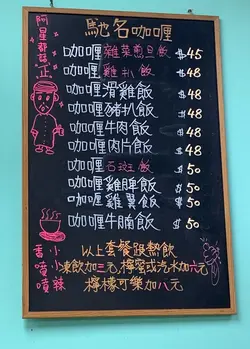 馳名咖喱
咖喱雜菜煎旦飯 $45
咖喱雞扒飯 $48
咖喱滑雞飯 $48
咖喱豬扒飯 $48
咖喱牛肉飯 $48
咖喱肉片飯 $48
咖喱石斑飯 $50
咖喱雞脾飯 $50
咖喱雞翼飯 $50
咖喱牛腩飯 $50
以上套餐跟熱飲
凍飲加三元,檸蜜或汽水加六元
檸檬可樂加八元
正
香噴噴
小小辣